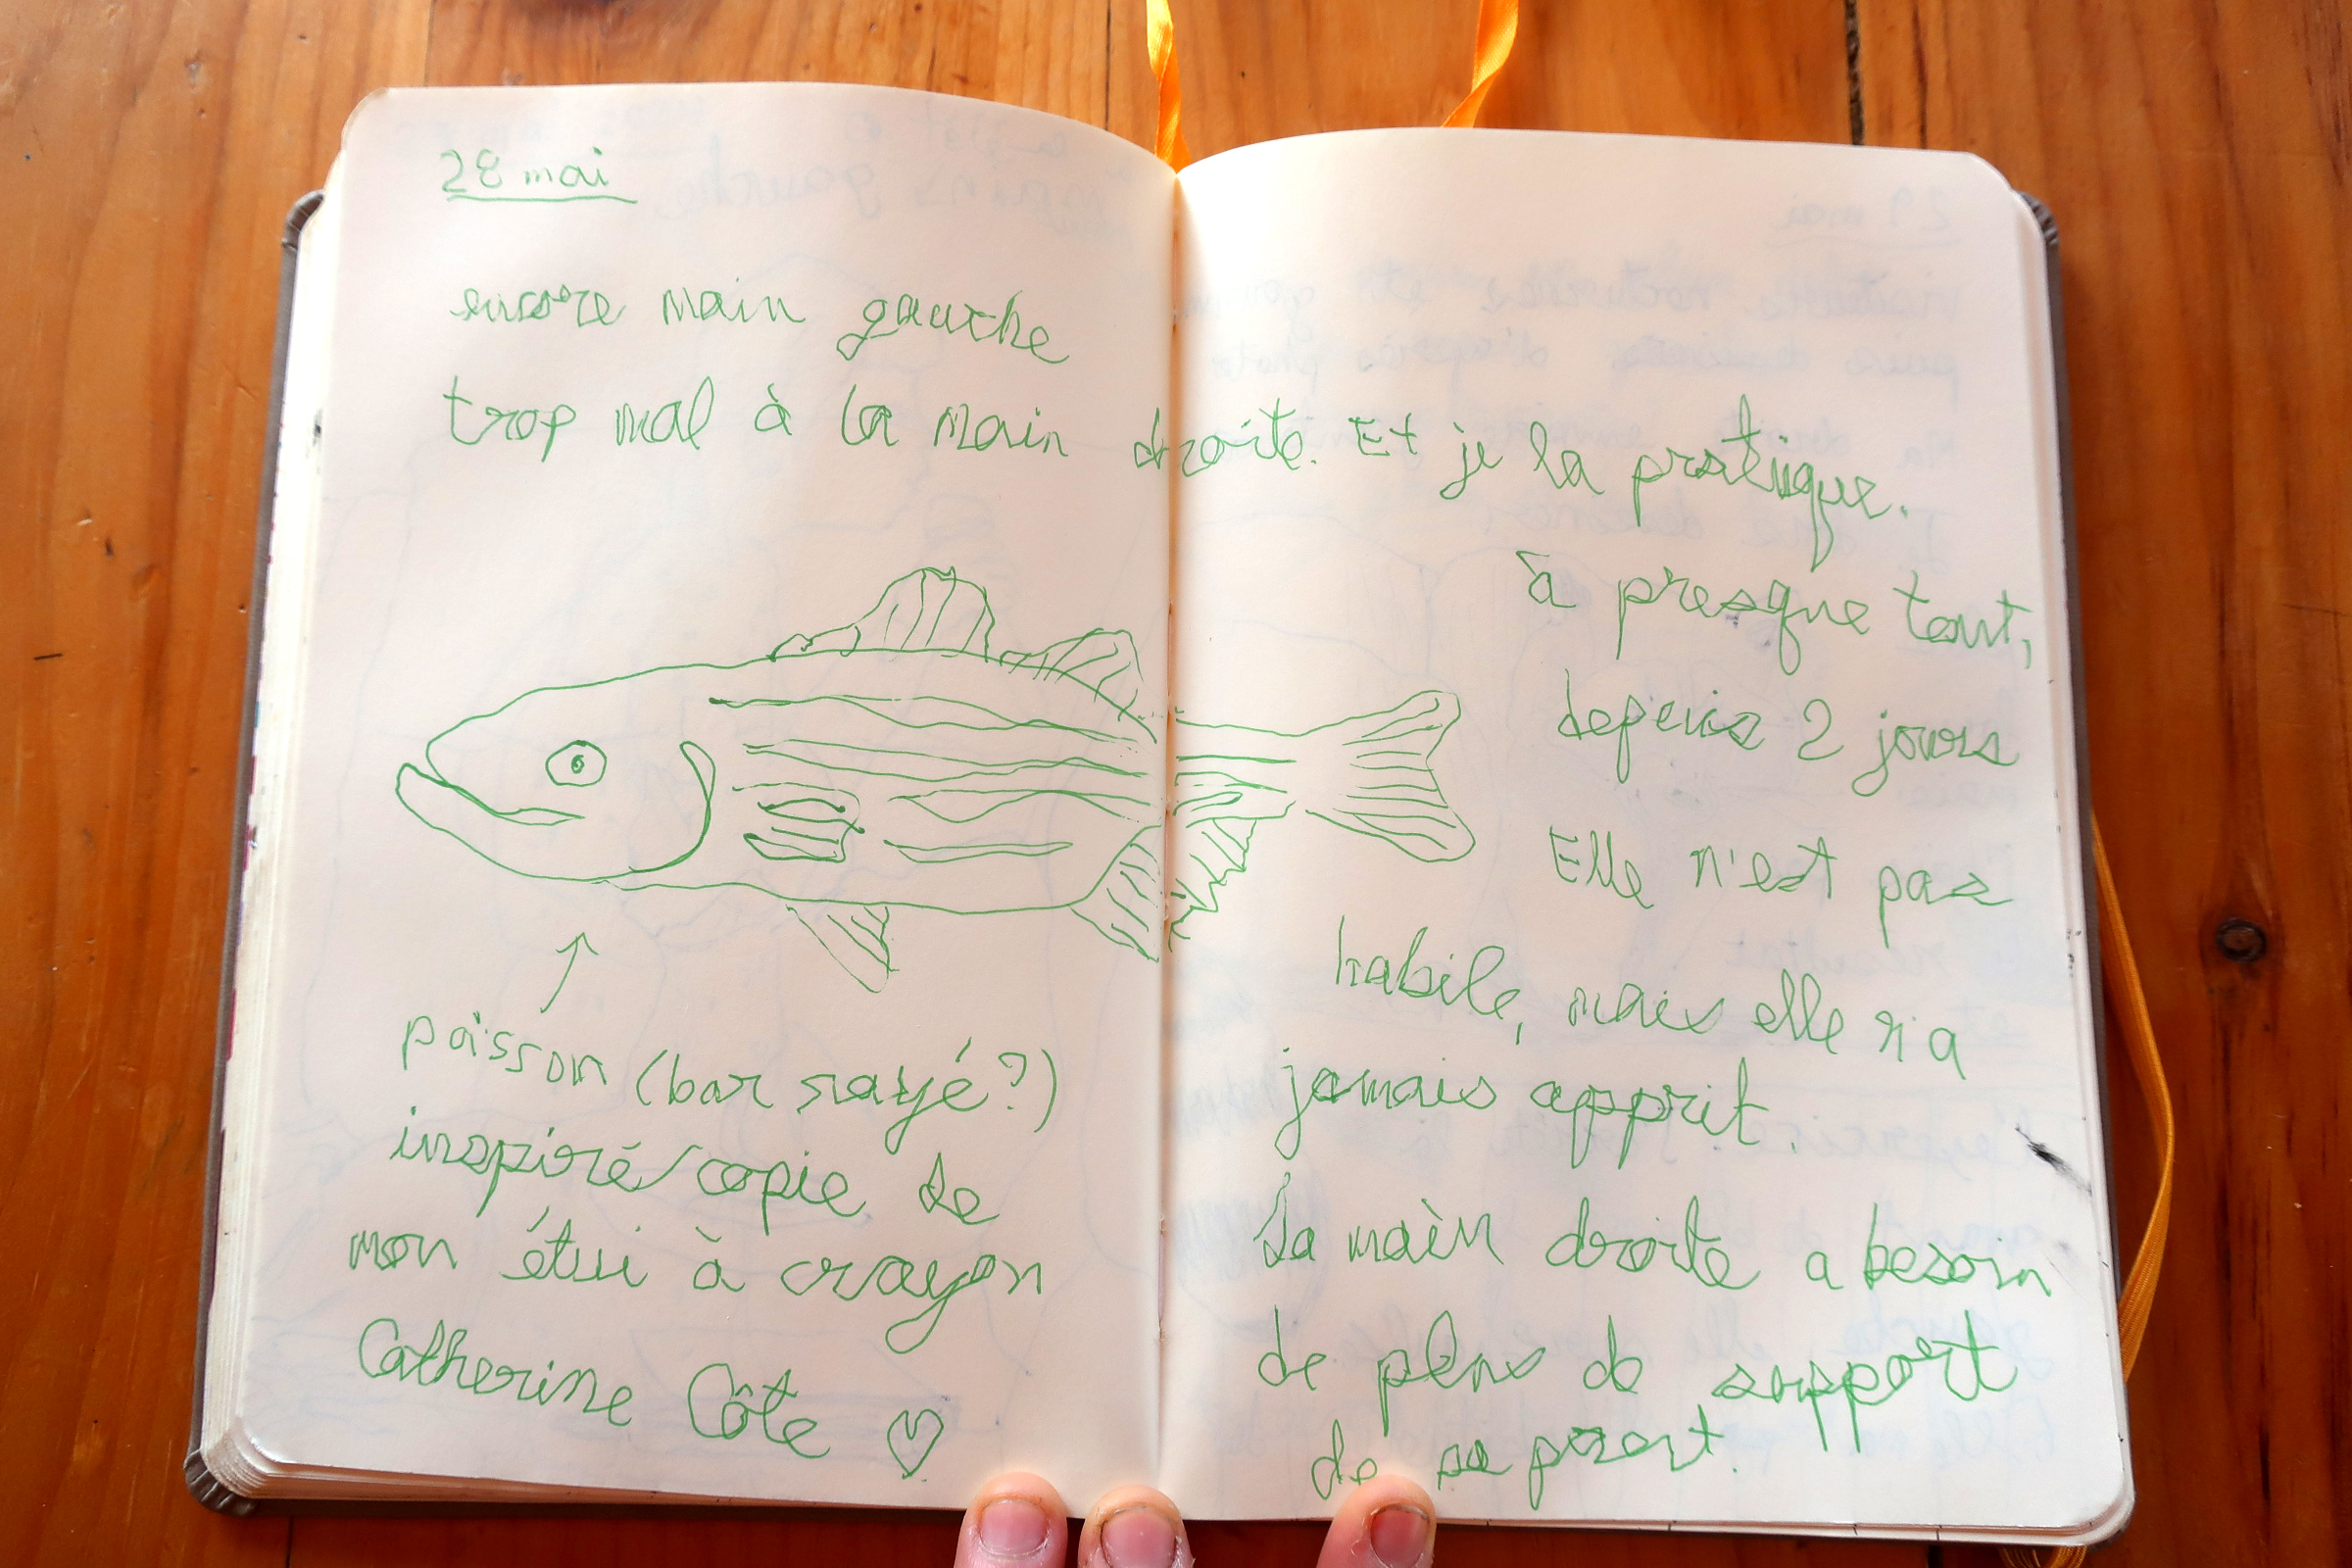 28 mai
encore main gauche
trop mal à la main droite. Et je la pratique.
à presque tout,
depuis 2 jours
Elle n'est pas
habile, mais elle n'a
jamais apprit.
La main droite a besoin
de plus de support
de sa part.
poisson (bar rayé?)
inspiré/copie de
mon étui à crayon
Catherine Côté ♡